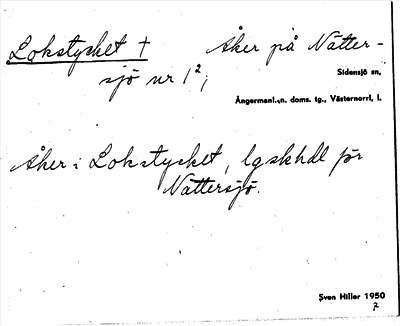 Lokstycket † Åker på Nätter-
sjö nr 1²;
Sidensjö sn,
Ångermanl.,n. doms. tg., Västernorrl. l.
Åker i Lokstycket, lgskhdl för
Nättersjö.
Sven Hiller 1950